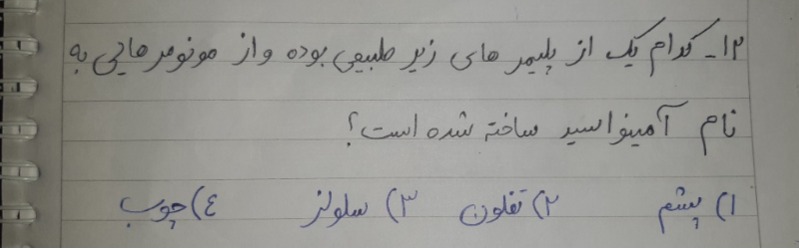 ۱۲- کدام یک از پلیمر های زیر طبیعی بوده و از مونومر هایی به
نام آمینواسید ساخته شده است؟
۱) پشم ۲) تفلون ۳) سلولز ٤) چوب